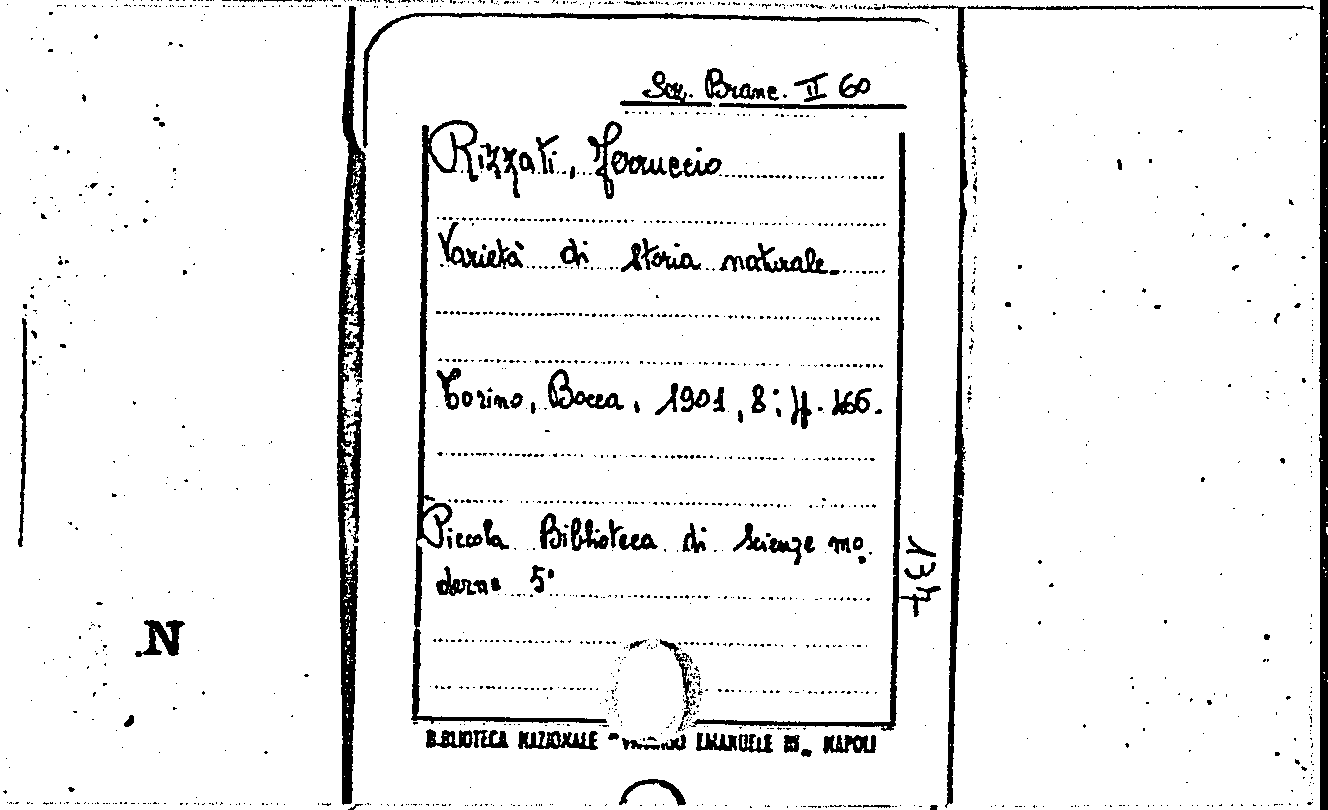 Sez. Branc. II 60
Rizzati, Ferruccio
Varietà di storia naturale.
Torino, Bocca, 1901, 8°; pp. 166.
Piccola Biblioteca di scienze mo-
derne 5°
134
N
BIBLIOTECA NAZIONALE "VITTORIO EMANUELE III" NAPOLI